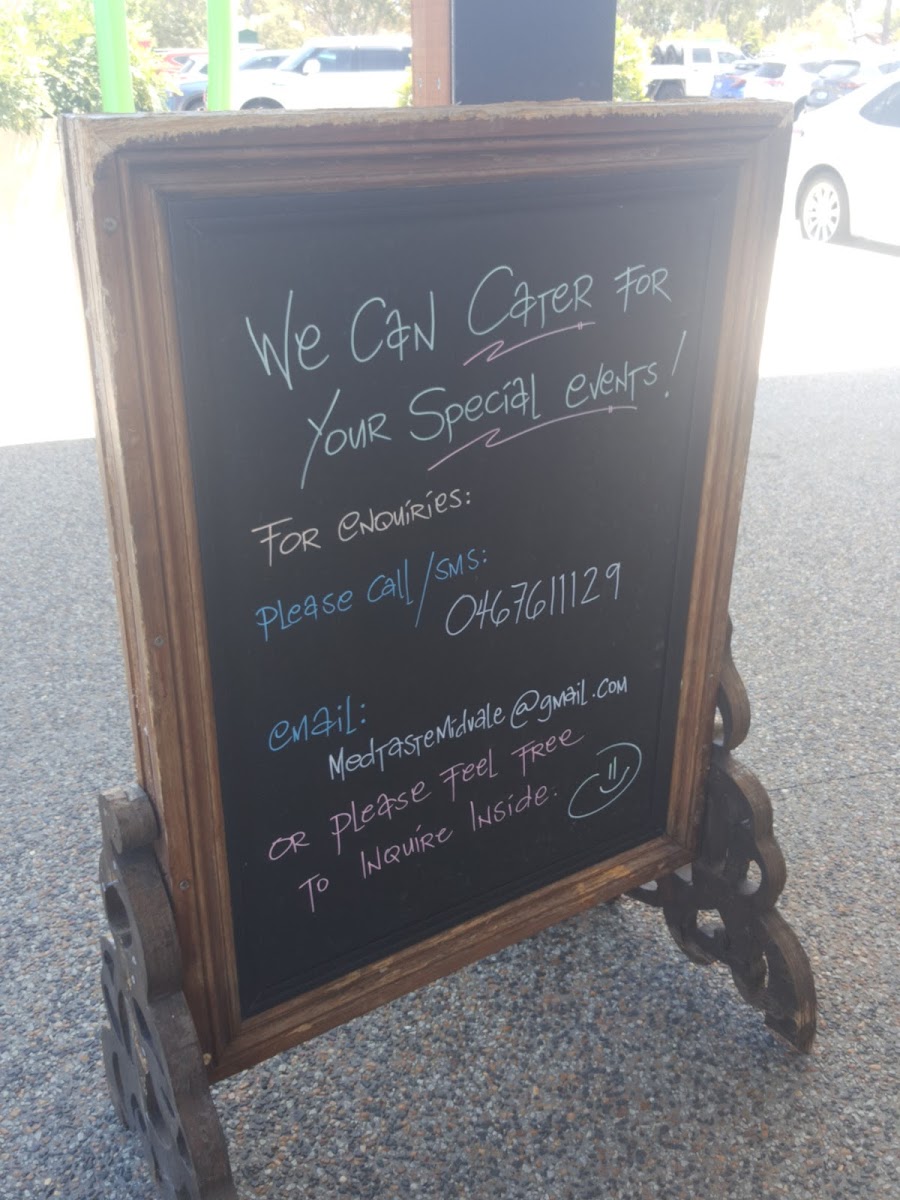 We Can Cater for
Your Special events!
For enquiries:
please call/sms:
0467611129
email:
MedTasteMidvale@gmail.com
or please feel free
to Inquire Inside.